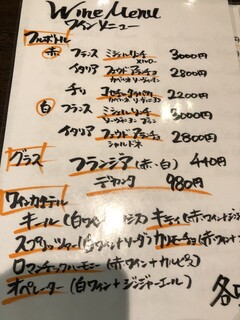 Wine Menu
ワインメニュー
フルボトル
赤 フランス ミッシェルリーチ 3000円
イタリア フェウド アランチョ 2800円
カベルネ・ソーヴィニヨン
チリ 2200円
カベルネ・ソーヴィニヨン
白 フランス ミッシェルリーチ 3000円
ソーヴィニヨンブラン
イタリア フェウド アランチョ 2800円
シャルドネ
グラス フランジア(赤・白) 440円
デカンタ 980円
ワインカクテル
キール(白ワイン カシス) キティ(赤ワイン+ジン
スプリッツァー(白ワイン+ソーダ) カリモーチョ(赤ワイン+
ロマンチックハーモニー(赤ワイン+カルピス)
オペレーター(白ワイン+ジンジャーエール)
各